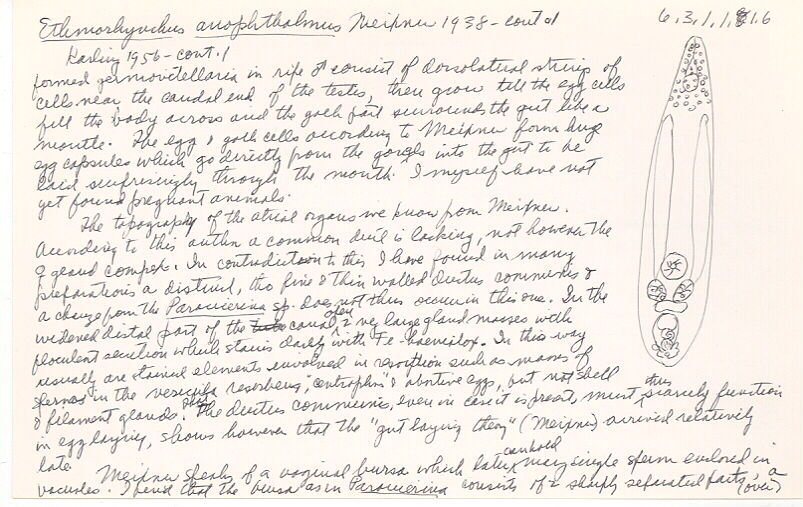 Ethmorhynchus anophthalmus Meixner 1938 - cont'd
6.3.1.1.8.1.6
Karling 1956 - cont.
formed germovitellaria in ripe ♂ consist of dorsolateral strings of
cells near the caudal end of the testes, then grow till the egg cells
fill the body across and the yolk part surrounds the gut like a
mantle. The egg & yolk cells according to Meixner form huge
egg capsules which go directly from the gonads into the gut to be
laid surprisingly through the mouth. I myself have not
yet found pregnant animals.
The topography of the atrial organs we know from Meixner.
According to this author a common duct is lacking, not however the
♀ gland complex. In contradiction to this I have found in many
preparations a distinct, tho fine & thin walled ductus communis &
a change from the Paracicerina sp. does not thus occur in this one. In the
widened distal part of the canal open 2 very large gland masses with
floculent secretion which stains darkly with Fe-haemtox. In this way
usually are stained elements involved in resorption such as masses of
sperms in the vesicula resorbens, "centrophin" & abortive eggs, but not shell
& filament glands. The ductus communis, even in case it is present, must thus scarcely function
in egg laying, shows however that the "gut laying theory" (Meixner) arrived relatively
late.
Meixner speaks of a vaginal bursa which later can hold many single sperm enclosed in
vacuoles. I find that the bursa as in Paracicerina consists of 2 sharply separated parts, a
(over)